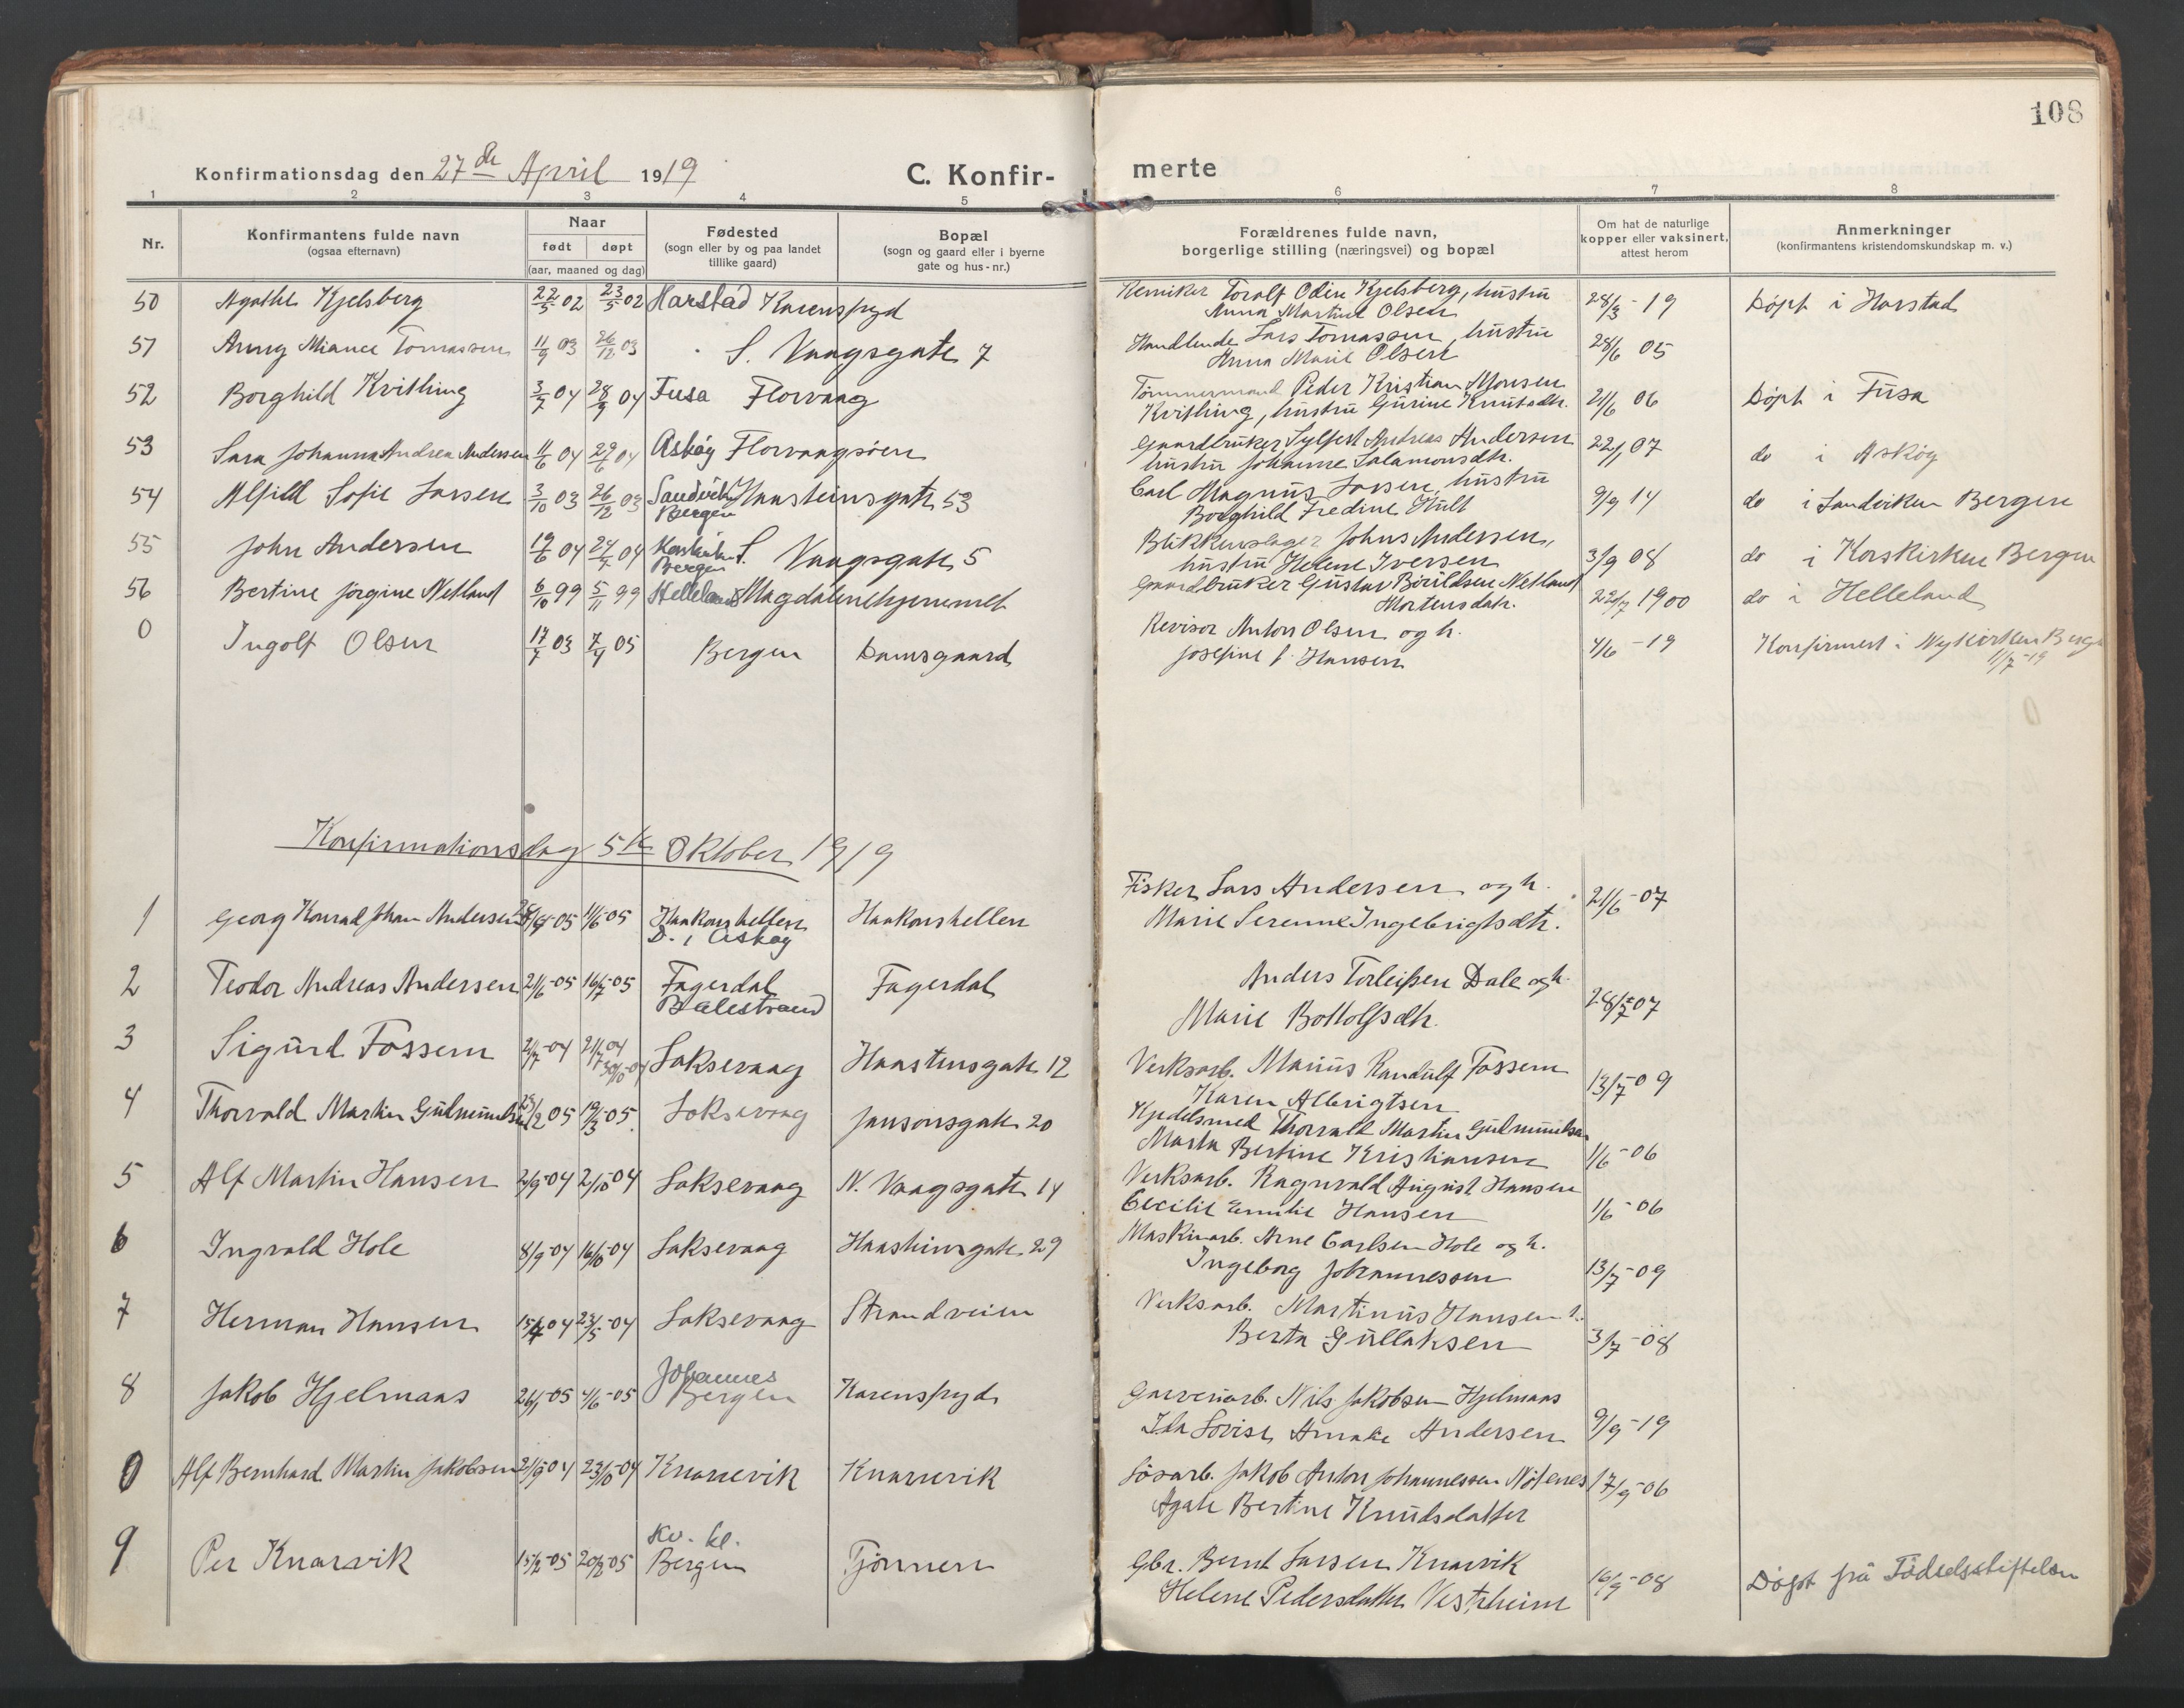 108
Konfirmationsdag den 27de April 1919
C. Konfirmerte
1 2 3 4 5 6 7 8
Nr.
Konfirmantens fulde navn
(ogsaa efternavn)
Naar
født døpt
(aar, maaned og dag)
Fødested
(sogn eller by og paa landet
tillike gaard)
Bopæl
(sogn og gaard eller i byerne
gate og hus-nr.)
Forældrenes fulde navn,
borgerlige stilling (næringsvei) og bopæl
Om hat de naturlige
kopper eller vaksinert,
attest herom
Anmerkninger
(konfirmantens kristendomskundskap m. v.)
50 Agathe Kjelsberg 22/5 02 23/5 02 Harstad Karenspryd
Kemiker Toralf Odin Kjelsberg, hustru
Anna Martine Olsen 28/3-19 Döpt i Harstad
51 Anny Tomassen 11/9 03 26/12 03 S. Vaagsgate 7
Handlende Lars Tomassen, hustru
Anna Marie Olsen 28/6 05
52 Borghild Kvitling 3/7 04 28/9 04 Fusa Florvaag
Tømmermand Peder Kristian Monsen
Kvitling, hustru Gurine Knutsdtr. 21/6 06 Döpt i Fusa
53 Sara Johanna Andrea Andersen 11/6 04 29/6 04 Asköy Florvaagsöen
Gaardbruker Sylfest Andreas Andersen
hustru Johanne Salamonsdtr. 22/1 07 do i Asköy
54 Alfild Sofie Larsen 3/10 03 26/12 03 Sandviken Bergen Haasteinsgate 53
Carl Magnus Larsen, hustru
Borghild Fredine Hult 9/9 14 do i Sandviken Bergen
55 John Andersen 19/6 04 24/7 04 Korskirken Bergen S. Vaagsgate 5
Blikkenslager Johns Andersen,
hustru Helene Iversen 3/9 08 do i Korskirken Bergen
56 Bertine Jörgine Netland 6/10 99 5/11 99 Helleland Magdalenehjemmet
Gaardbruker Gustav Netland
Mortensdatr. 22/7 1900 do i Helleland
0 Ingolf Olsen 17/7 03 7/4 05 Bergen Damsgaard
Revisor Anton Olsen og h.
Josefine f. Hansen 4/6-19 Konfirmert i Nykirken Berg
11/7-19
Konfirmationsdag 5te Oktober 1919
1 Georg Konrad Johan Andersen 11/6-05 Haakonshellen Haakonshellen
D. i Askøy
Fisker Lars Andersen og h.
Marie Serenne Ingebrigtsdtr. 21/6-07
2 Teodor Andreas Andersen 21/6-05 16/7-05 Fagerdal Fagerdal
Balestrand
Anders Torleifsen Dale og h.
Marie Bottolfsdtr. 28/7-07
3 Sigurd Fossem 2/7-04 21/7 04 30/10-04 Laksevaag Haastensgate 12
Verksarb. Marius Randulf Fossem
Karen Albrigtsen 13/7-09
4 Thorvald Martin Gulmundsen 23/2 05 19/3-05 Laksevaag Jansonsgate 20
Kjedelsmed Thorvald Martin Gulmundsen
Marta Bertine Kristiansen 1/6-06
5 Alf Martin Hansen 2/9-04 2/10-04 Laksevaag N. Vaagsgate 14
Verksarb. Ragnvald August Hansen
Cecilie Emilie Hansen 1/6-06
6 Ingvald Hole 8/9-04 16/10-04 Laksevaag Haasteinsgate 29
Maskinarb. Arne Carlsen Hole og h.
Ingeborg Johannessen 13/7-09
7 Herman Hansen 15/4 04 23/5-04 Laksevaag Strandveien
Verksarb. Martinus Hansen h.
Berta Gullaksen 3/7-08
8 Jakob Hjelmaas 26/1-05 4/6-05 Johannes Karenspryd
Bergen
Garveriarb. Nils Jakobsen Hjelmaas
Ida Lovise Amalie Andersen 9/9-19
0 Alf Bernhard Martin Jakobsen 21/9 04 23/10-04 Knarrevik Knarrevik
Lösarb. Jakob Anton Johannessen 17/9-06
Agate Bertine Knudsdatter
9 Per Knarvik 15/2-05 20/2-05 Kv. kl. Tjönnen
Bergen
Gbr. Bernt Larsen Knarvik
Helene Pedersdatter Vestrheim 16/9-08 Döpt på Fødselsstiftelsen